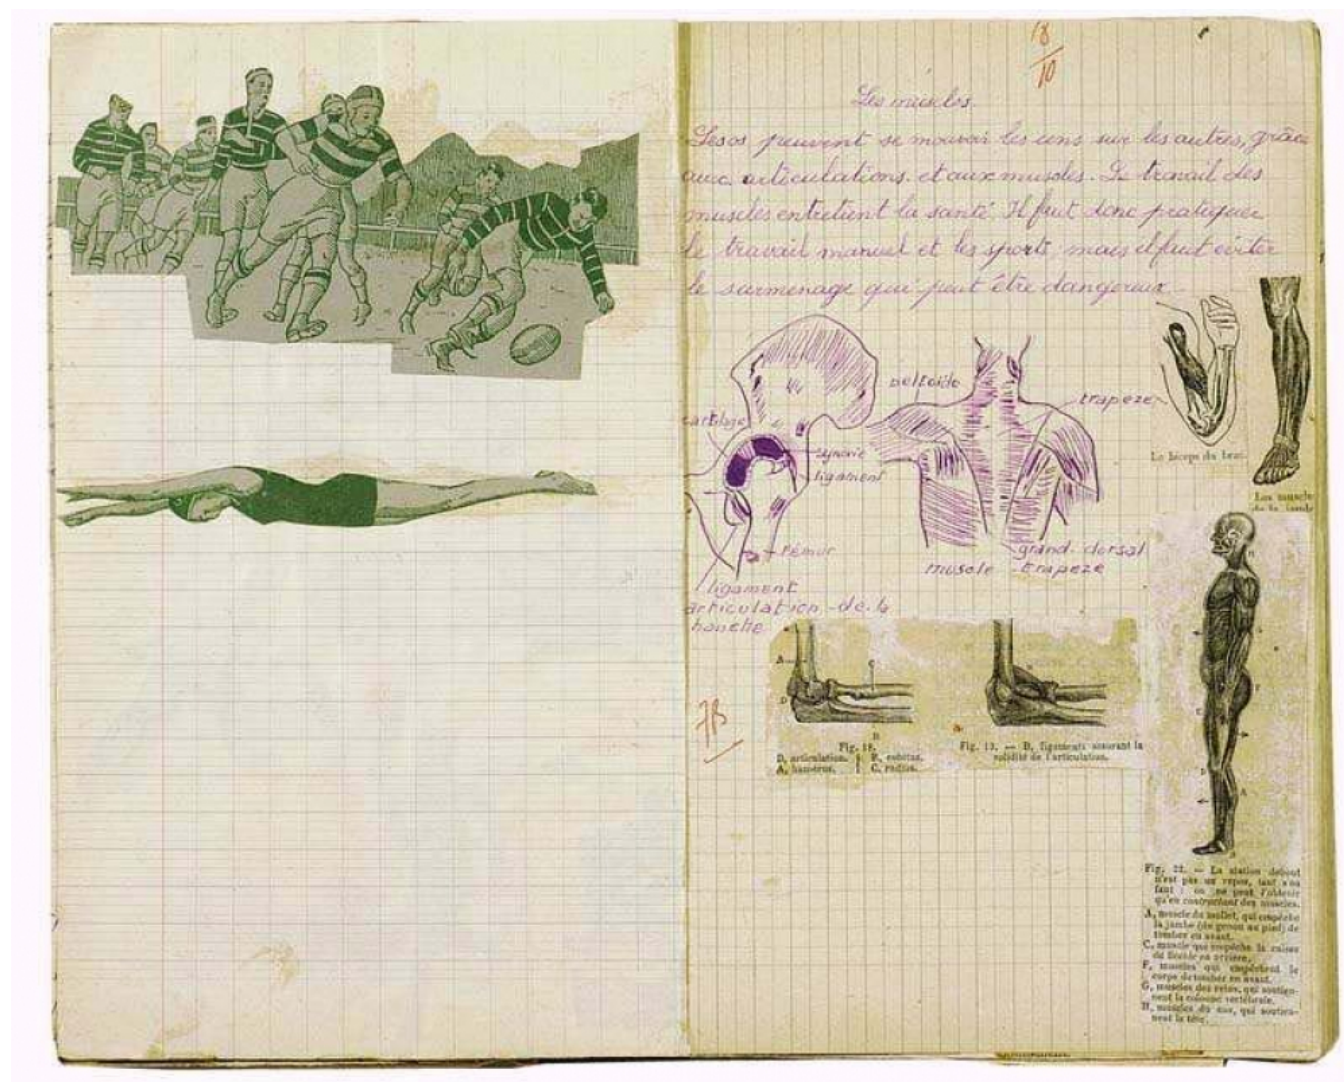 18
10
Les muscles.
Les os peuvent se mouvoir les uns sur les autres, grâce
aux articulations. et aux muscles. Le travail des
muscles entretient la santé. Il faut donc pratiquer
le travail manuel et les sports, mais il faut éviter
le surmenage qui peut être dangereux.
deltoïde
trapeze
cartilage
synovie
ligament
fémur
grand-dorsal
muscle trapeze
ligament
articulation de la
hanche
Le biceps du bras.
Les muscle
de la jambe
A
C
D
B
Fig. 18.
D, articulation.
A, humérus.
B, cubitus.
C, radius.
Fig. 19. — B, ligaments assurant la
solidité de l'articulation.
Fig. 22. — La station debout
n'est pas un repos, tant s'en
faut : on ne peut l'obtenir
qu'en contractant des muscles.
A, muscle du mollet, qui empêche
la jambe (du genou au pied) de
tomber en avant.
C, muscle qui empêche la cuisse
de fléchir en arrière.
F, muscles qui empêchent le
corps de tomber en avant.
G, muscles des reins, qui soutien-
nent la colonne vertébrale.
H, muscles du cou, qui soutien-
nent la tête.